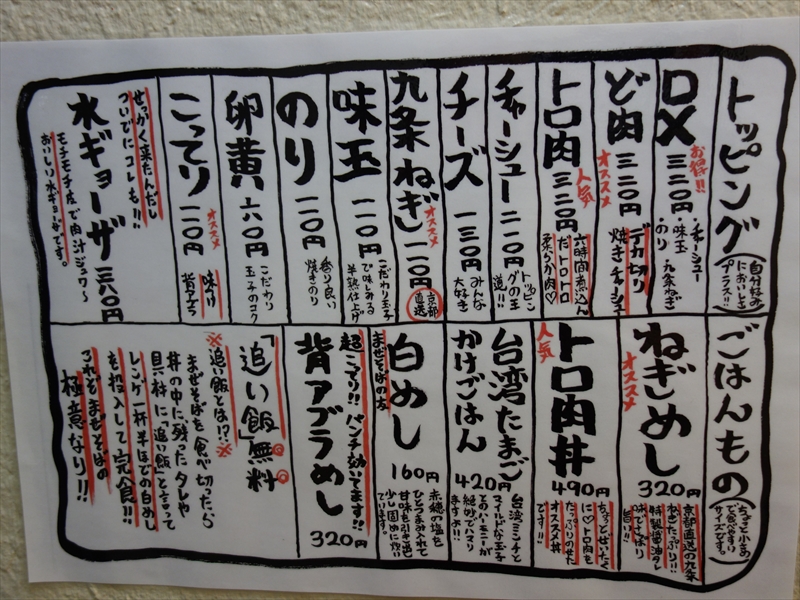 トッピング
(自分好みにおいしさプラス!!)
DX 三二〇円
お得!!
・チャーシュー
・味玉 ・九条ねぎ
・のり
ど肉 三二〇円
オススメ
デカ切り
焼きチャーシュー
トロ肉 三二〇円
人気
六時間煮込ん
だトロトロ
柔らか肉♡
チャーシュー 二一〇円
トッピン
グの王
道!!
チーズ 一三〇円
みんな
大好き
九条ねぎ 一一〇円
オススメ
京都
直送
味玉 一一〇円
こだわり玉子
で味しみる
半熟仕上げ
のり 一一〇円
香り良い
焼きのり
卵黄 六〇円
こだわり
玉子のコク
こってり 一一〇円
オススメ
味付け
背アブラ
せっかく来たんだし
ついでにコレも!!
水ギョーザ 三六〇円
モチモチ皮で肉汁ジュワ〜
おいしい水ギョーザです。
ごはんもの
(ちょっと小さめで食べやすいサイズです。)
ねぎめし
オススメ
320円
京都直送の九条
ねぎたっぷり!!
特製醤油ダレ
味でさっぱり
旨い!!
トロ肉丼
人気
490円
ちょっとぜいたく
に♡トロ肉を
たっぷりのせた
オススメ丼
です!!
台湾たまご
かけごはん
420円
台湾ミンチと
マイルドな玉子
とのハーモニーが
絶妙でハマり
ますよ!!
白めし
まぜそばの友
160円
赤穂の塩を
ひとつまみ入れて
甘味を引き出し
少し固めに炊い
ています。
超こってり!!パンチ効いてます!!
背アブラめし
320円
「追い飯」無料
※追い飯とは!?※
まぜそばを食べ切ったら
丼の中に残ったタレや
具材に「追い飯」と言って
レンゲ一杯半ほどの白めし
を投入して完食!!
これぞまぜそばの
極意なり!!